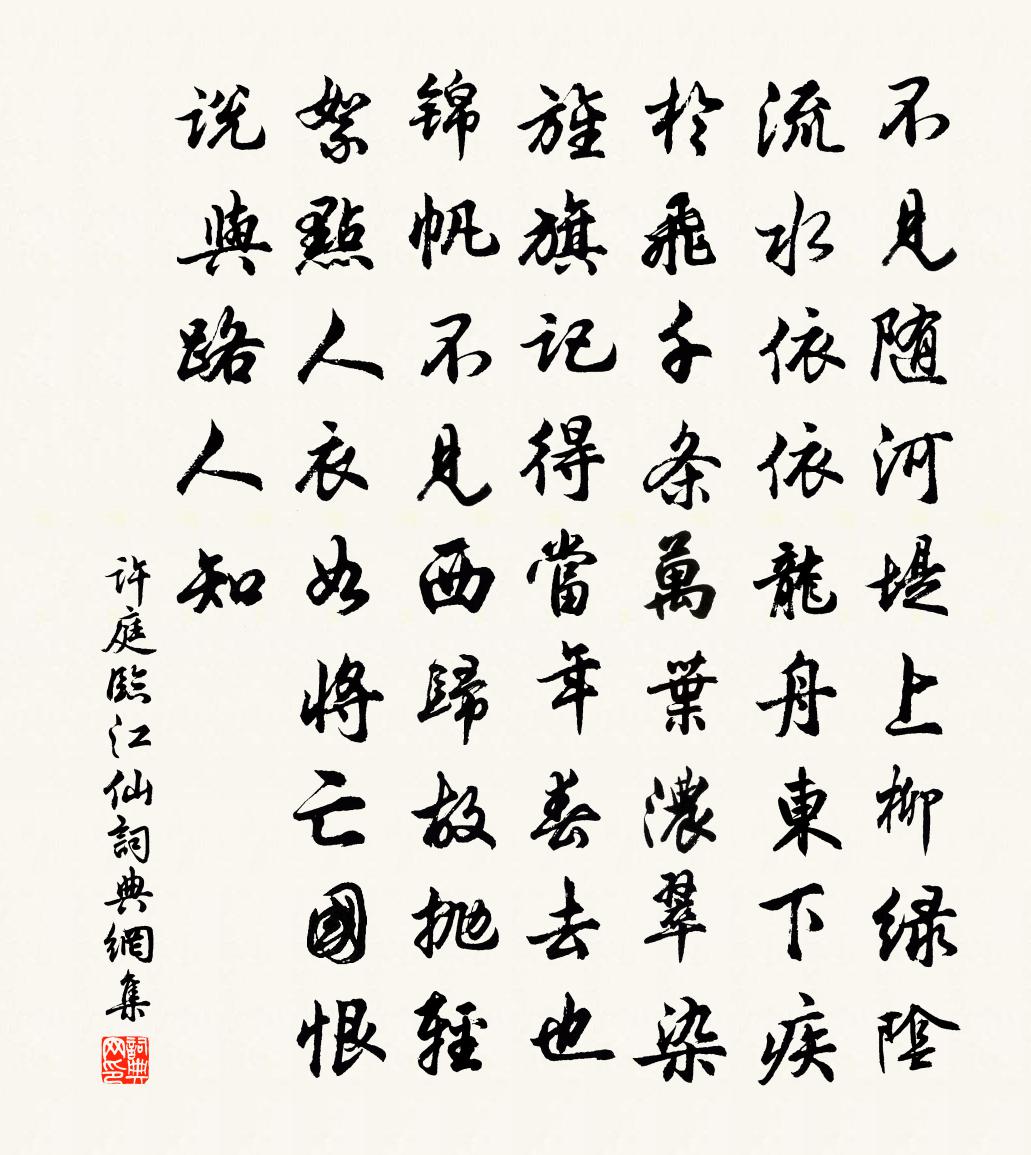 不見随河堤上柳綠陰
流水依依龍舟東下疾
於飛千条萬葉濃翠染
旌旗記得當年春去也
錦帆不見西歸故抛輕
絮點人衣如將亡國恨
説與路人知
許庭臨江仙詞典網集
詞典网印